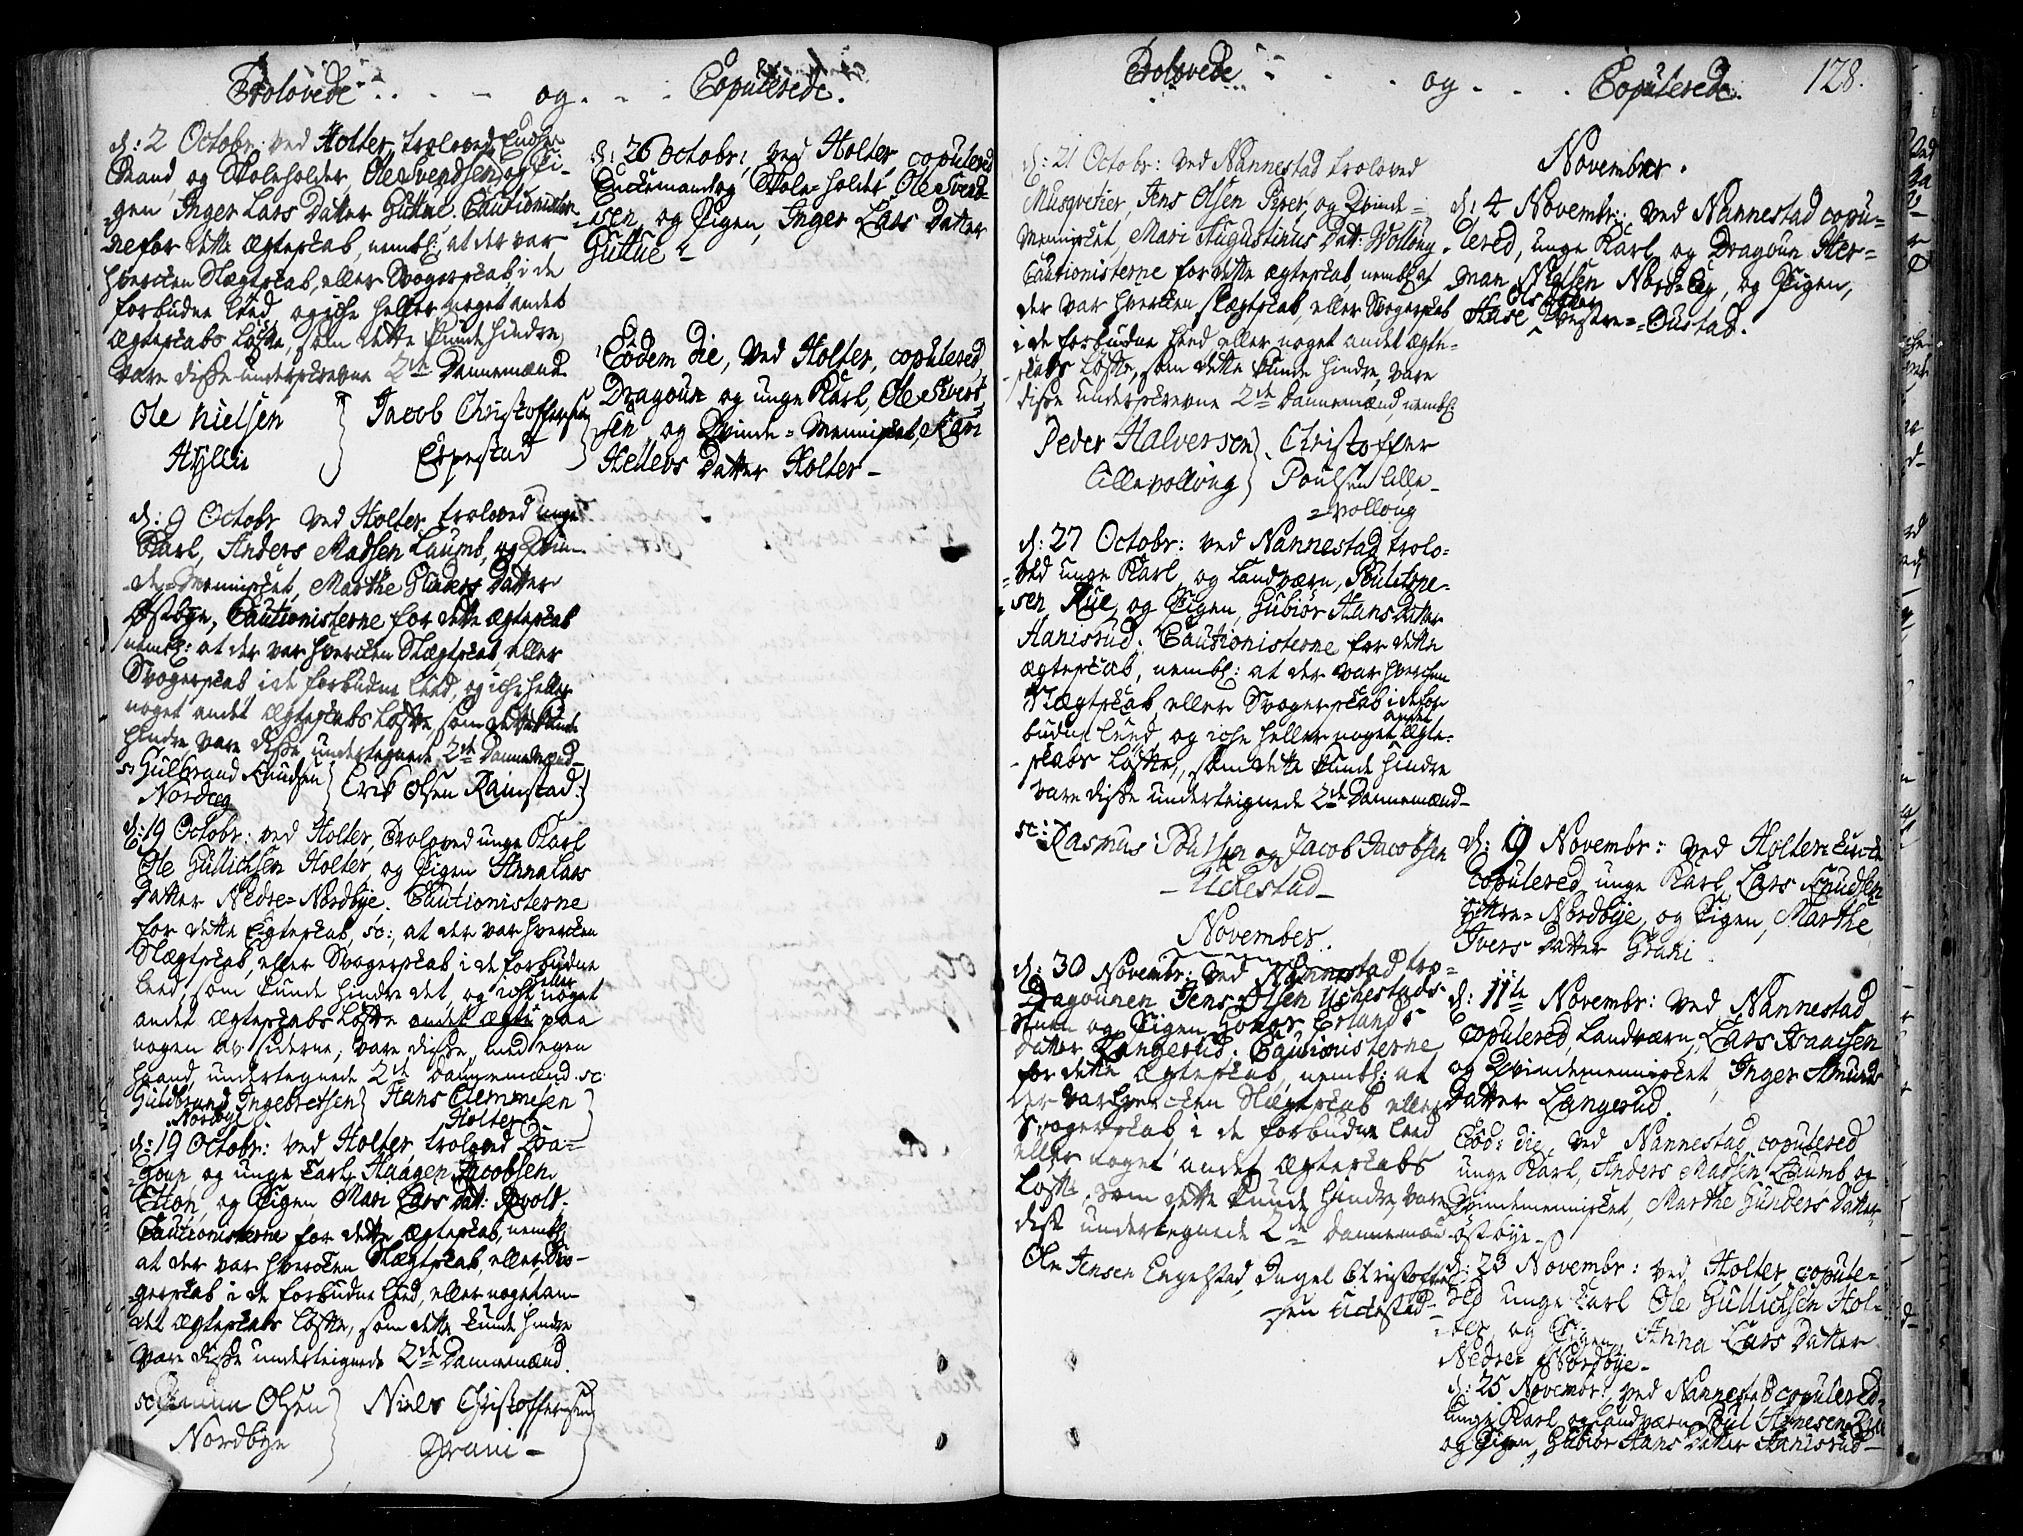 Trolovede - og - Copulerede.
d: 2 Octobr. ved Holter, troloved Encke
Mand, og Skoleholder, Ole Svendsen, og Pi-
gen Inger Lars Datter Guttue. Cautionister-
ne for dette Ægteskab, nembl: at der var
hvercken Slægtskab, eller Svogerskab, i de
forbudne leed, og iche heller noget andet
Ægteskabs Løffte, som dette kunde hindre,
vare disse underskrevne 2de Dannemænd
Ole Nielsen } Jacob Christoffersen
Hÿllie Eépestad
d: 9 Octobr ved Holter troloved unge
Karl, Anders Madsen Laumb, og Qvin-
de-Mennisket, Marthe Gunders Datter
Østbye, Cautionisterne for dette Ægteskab
nembl: at der var hvercken Slægtskab, eller
Svogerskab i de forbudne leed, og iche heller
noget andet Ægteskabs Løfte, som dette kunde
hindre vare disse undertegnede 2de Dannemænd
sc: Gulbrand Knudsen } Erik Olsen Ramstad }
Nordeeg
d: 19 Octobr: ved Holter, Troloved unge Karl
Ole Gullichsen Holter, og Pigen Anna Lars
Datter Nedre-Nordbye. Cautionisterne
for dette Egteskab, sc:, at der var hvercken
Slægtskab, eller Svogerskab i de forbudne
leed, som kunde hindre det, og iche heller noget
andet Ægteskabs Løfte andet Ægte paa
nogen av siderne, vare disse, med egen
haand, undertegnede 2de Dannemænd. sc:
Guldbrand Ingebretsen } Hans Clemmesen
Nordbye Holter
d: 19 Octobr: ved Holter, troloved Dra-
goun og unge Karl, Haagen Jacobsen
Elton, og Pigen Mari Lars Dat: Qvolt.
Cautionisterne for dette Ægteskab, nembl:
at der var hvercken Slægtskab, eller Svo-
gerskab i de forbudne leed, eller noget an-
det Ægteskabs Løffte, som dette kunde hindre
vare disse underteignede 2de Dannemænd.
sc: Olsen } Niels Christoffersen
Nordbye Grani -
d: 26 Octobr; ved Holter copulered
Enckemand og Skole-holder Ole Svend-
sen, og Pigen, Inger Lars Datter
Guttue -
Eodem die, ved Holter, copulered,
Dragoun og unge Karl, Ole Sivers-
sen, og Qvinde-Mennisket, Kari
Hellevs Datter Holter -
Trolovede - og - Copulerede. 128.
d: 21 Octobr: ved Nannestad trolovod
Musqvetier, Jens Olsen Piper, og Qvinde-
Mennisket, Mari Augustinus Datt: Wollong.
Cautionisterne for dette Ægteskab, nembl: at
der var hvercken Slægtskab, eller Svogerskab
i de forbudne leed eller noget andet Ægte-
skabs Løfte, som dette kunde hindre, vare
disse underskrevne 2de Dannemænd, nembl:
Peder Halversen } Christoffer
Lillevollong } Poulsen Lille-
=vollong
d: 27 Octobr: ved Nannestad trolo-
ved unge Karl, og Landværn, Poul Arne-
sen Rue, og Pigen, Gubiør Hans Datter
Hanisrud. Cautionisterne for dette
Ægteskab, nembl: at der var hvercken
Slægtskab, eller Svogerskab i de for-
budne leed, og iche heller noget andet Ægte-
skabs Løffte, som dette kunde hindre
vare disse underteignede 2de Dannemænd -
sc: Rasmus og Jacob Jacobsen
- Uckestad -
November.
d: 30 Novembr: ved Nannestad tro-
Dragounen Jens Olsen Uchestads-
og Pigen Erlands
Datter Langerud. Cautionisterne
for dette Ægteskab, nembl: at
der var hvercken Slægtskab eller
Svogerskab i de forbudne leed
eller noget andet Ægteskabs
Løfte, som dette kunde hindre, vare
disse undertegnede 2de Dannemæn
Ole Jensen Engelstad, Ingel Christoffer
sen Uckestad -
November.
d: 4 Novembr: ved Nannestad copu-
lered, unge Karl og Dragoun Her-
man Nielsen Nord-Eeg, og Pigen,
Aase Ols Datter Westre-Bustad.
d: 9 Novembr: ved Holter kircke
copulered, unge Karl, Lars Knudsen
Nordbye, og Pigen, Marthe
Ivers Datter Grani.
d: 11te Novembr: ved Nannestad
copulered, Landværn, Lars Haaisen
og Qvindemennisket, Inger Amunds
Datter Langerud.
Eod: die, ved Nannestad copulered
unge Karl, Anders Madsen Laumb og
Qvindemennisket, Marthe Gunders Datter
Østbye -
d: 23 Novembr: ved Holter copule-
red unge Karl Ole Gullichsen Hol-
ter og Pigen, Anna Lars Datter
Nedre Nordbye -
d: 25 Novembr: ved Nannestad copulered
unge Karl, og Landværn Poul Arnesen Rue
og Pigen, Gubiør Hans Datter Hanisrud -